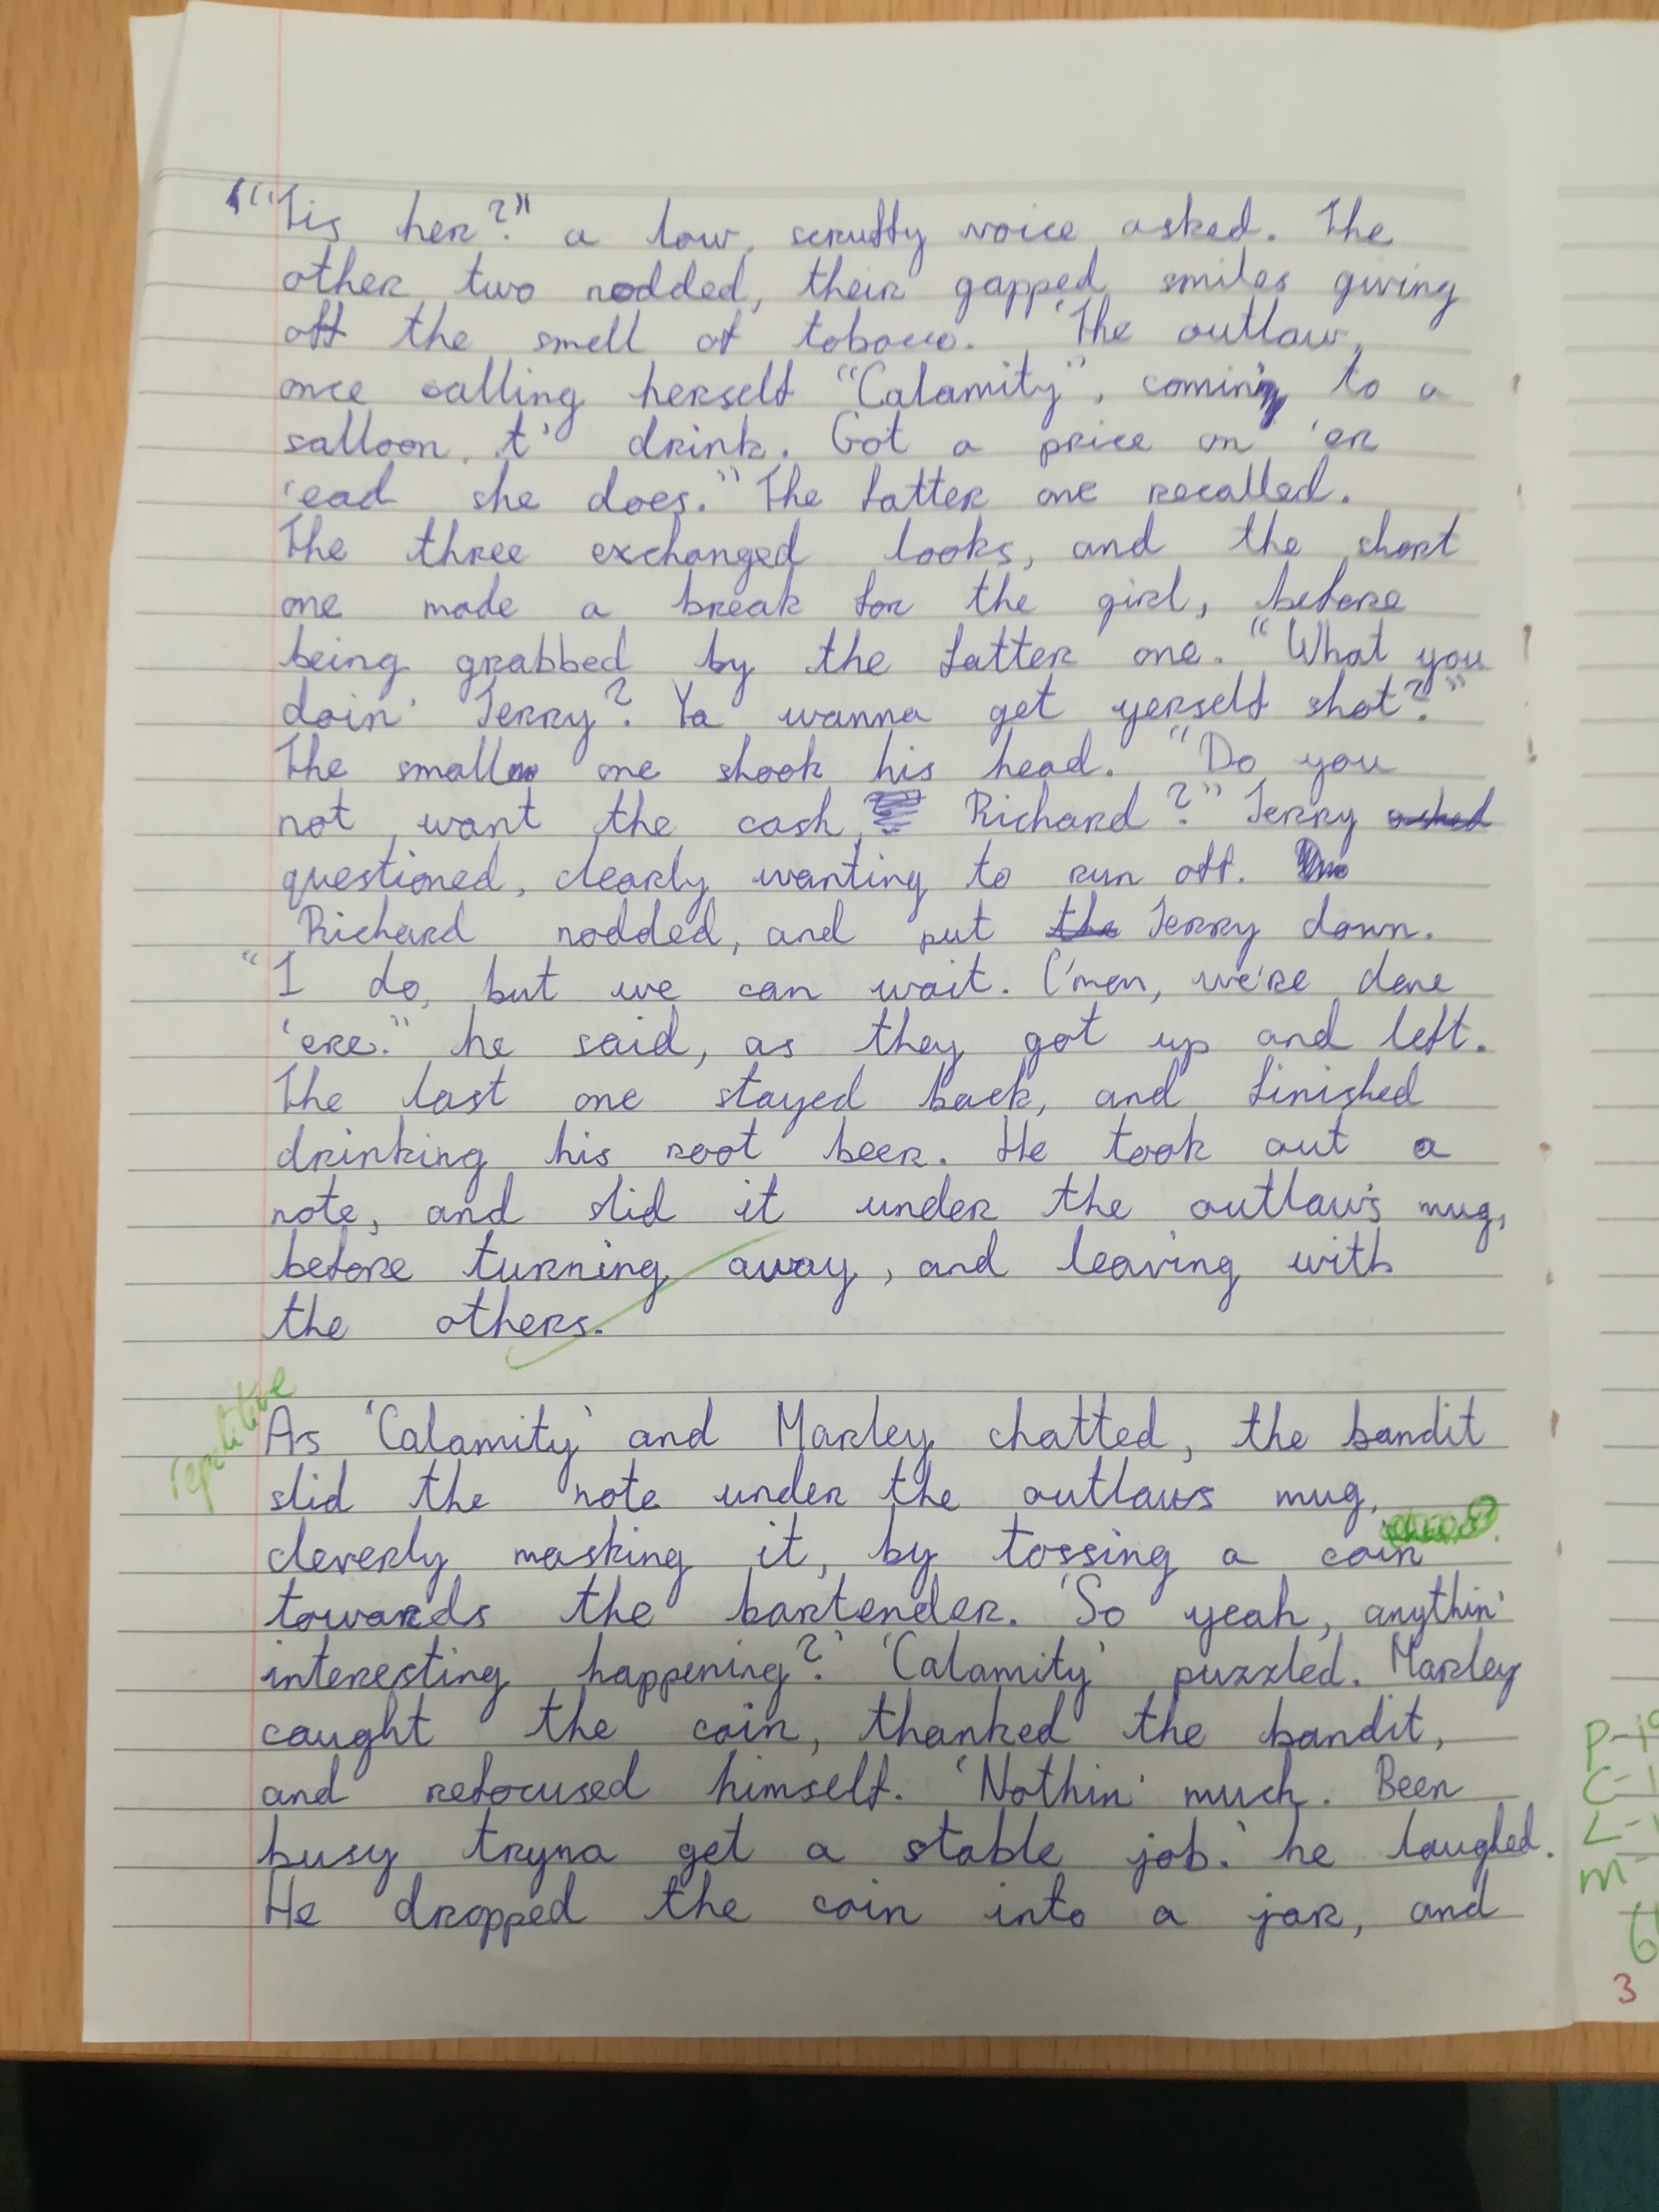 "'Tis her?" a low, scruffy voice asked. The
other two nodded, their gapped smiles giving
off the smell of tobacco. "The outlaw,
once calling herself "Calamity", coming to a
salloon t' drink. Got a price on 'er
'ead she does." The fatter one recalled.
The three exchanged looks, and the short
one made a break for the girl, before
being grabbed by the fatter one. "What you
doin' Jerry? Ya wanna get yerself shot?"
The small one shook his head. "Do you
not want the cash, Richard?" Jerry asked
questioned, clearly wanting to run off.
Richard nodded, and put the Jerry down.
"I do, but we can wait. C'mon, we're done
'ere." he said, as they got up and left.
The last one stayed back, and finished
drinking his root beer. He took out a
note, and slid it under the outlaw's mug,
before turning away, and leaving with
the others.
repetitive
As 'Calamity' and Marley chatted, the bandit
slid the note under the outlaws mug,
cleverly masking it, by tossing a coin
towards the bartender. 'So yeah, anythin'
interesting happening?' 'Calamity' puzzled. Marley
caught the coin, thanked the bandit,
and refocused himself. 'Nothin' much. Been
busy tryna get a stable job.' he laughed.
He dropped the coin into a jar, and
P-
C-
L-
M-
3